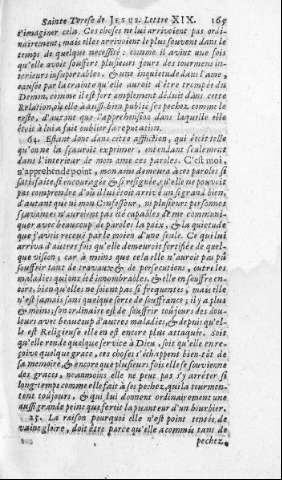 Sainte Terese de JESUS. Lettre XIX. 165
s'imaginer cela. Ces choses ne lui arrivoient pas ordi-
nairement; mais elles arrivoient le plus souvent dans le
temps de quelque necessité: comme il avint une fois
qu'elle avoit souffert plusieurs jours des tourmens in-
terieurs insuportables, & une inquietude dans l'ame
causée par la crainte qu'elle auroit d'être trompée du
Demon, comme il est fort amplement déduit dans cette
Relation, qu'elle a aussi bien public ses pechez comme le
reste, d'autant que l'apprehension dans laquelle elle
étoit à lui a fait oublier sa reputation.
24. Etant donc dans cette affliction, qui étoit telle
qu'on ne la sçauroit exprimer, entendant seulement
dans l'interieur de mon ame ces paroles. C'est moi,
n'apprehende point, mon ame demeura à ces paroles si
satisfaite, si encouragée & si resignée, qu'elle ne pouvoit
pas comprendre d'où il lui étoit arrivé un si grand bien,
d'autant que ni mon Confesseur, ni plusieurs personnes
sçavantes n'auroient pas été capables de me communi-
quer avec beaucoup de paroles la paix, & la quietude
que j'avois reçuë par le moien d'une seule. Ce qui lui
arriva d'autres fois qu'elle demeuroit fortifiée de quel-
que vision, car à moins que cela elle n'auroit pas pû
souffrir tant de travaux & de persecutions, outre les
maladies qui ont été innombrables, & elle en souffre en-
core, bien qu'elles ne soient pas si frequentes, mais elle
n'est jamais sans quelque sorte de souffrance; il y a plus
& moins; son ordinaire est de souffrir toûjours des dou-
leurs avec beaucoup d'autres maladies; & depuis qu'el-
le est Religieuse elle en est encore plus attaquée, soit
qu'elle rende quelque service à Dieu, soit qu'elle en re-
çoive quelque grace, ces choses s'échappent bien-tôt de
sa memoire, & encore que plusieurs fois elle se souvienne
des graces, neanmoins elle ne peut pas s'y arréter si
long-temps comme elle fait à ses pechez, qui la tourmen-
tent toûjours, & qui lui donnent ordinairement une
aussi grande peine que feroit la puanteur d'un bourbier.
25. La raison pourquoi elle n'est point tentée de
vaine gloire, doit être parce qu'elle a commis tant de
pechez